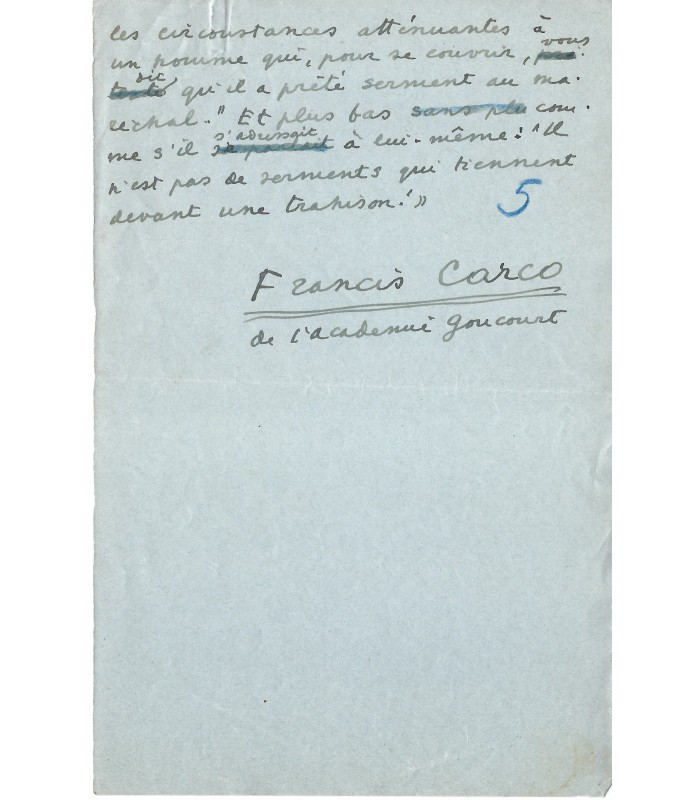 les circonstances atténuantes à
un homme qui, pour se couvrir, vous
dit qu'il a prêté serment au ma-
réchal." Et plus bas sans plu com-
me s'il s'adressait à lui-même : "Il
n'est pas de serments qui tiennent
devant une trahison !"»
5
Francis Carco
de l'academie Goncourt